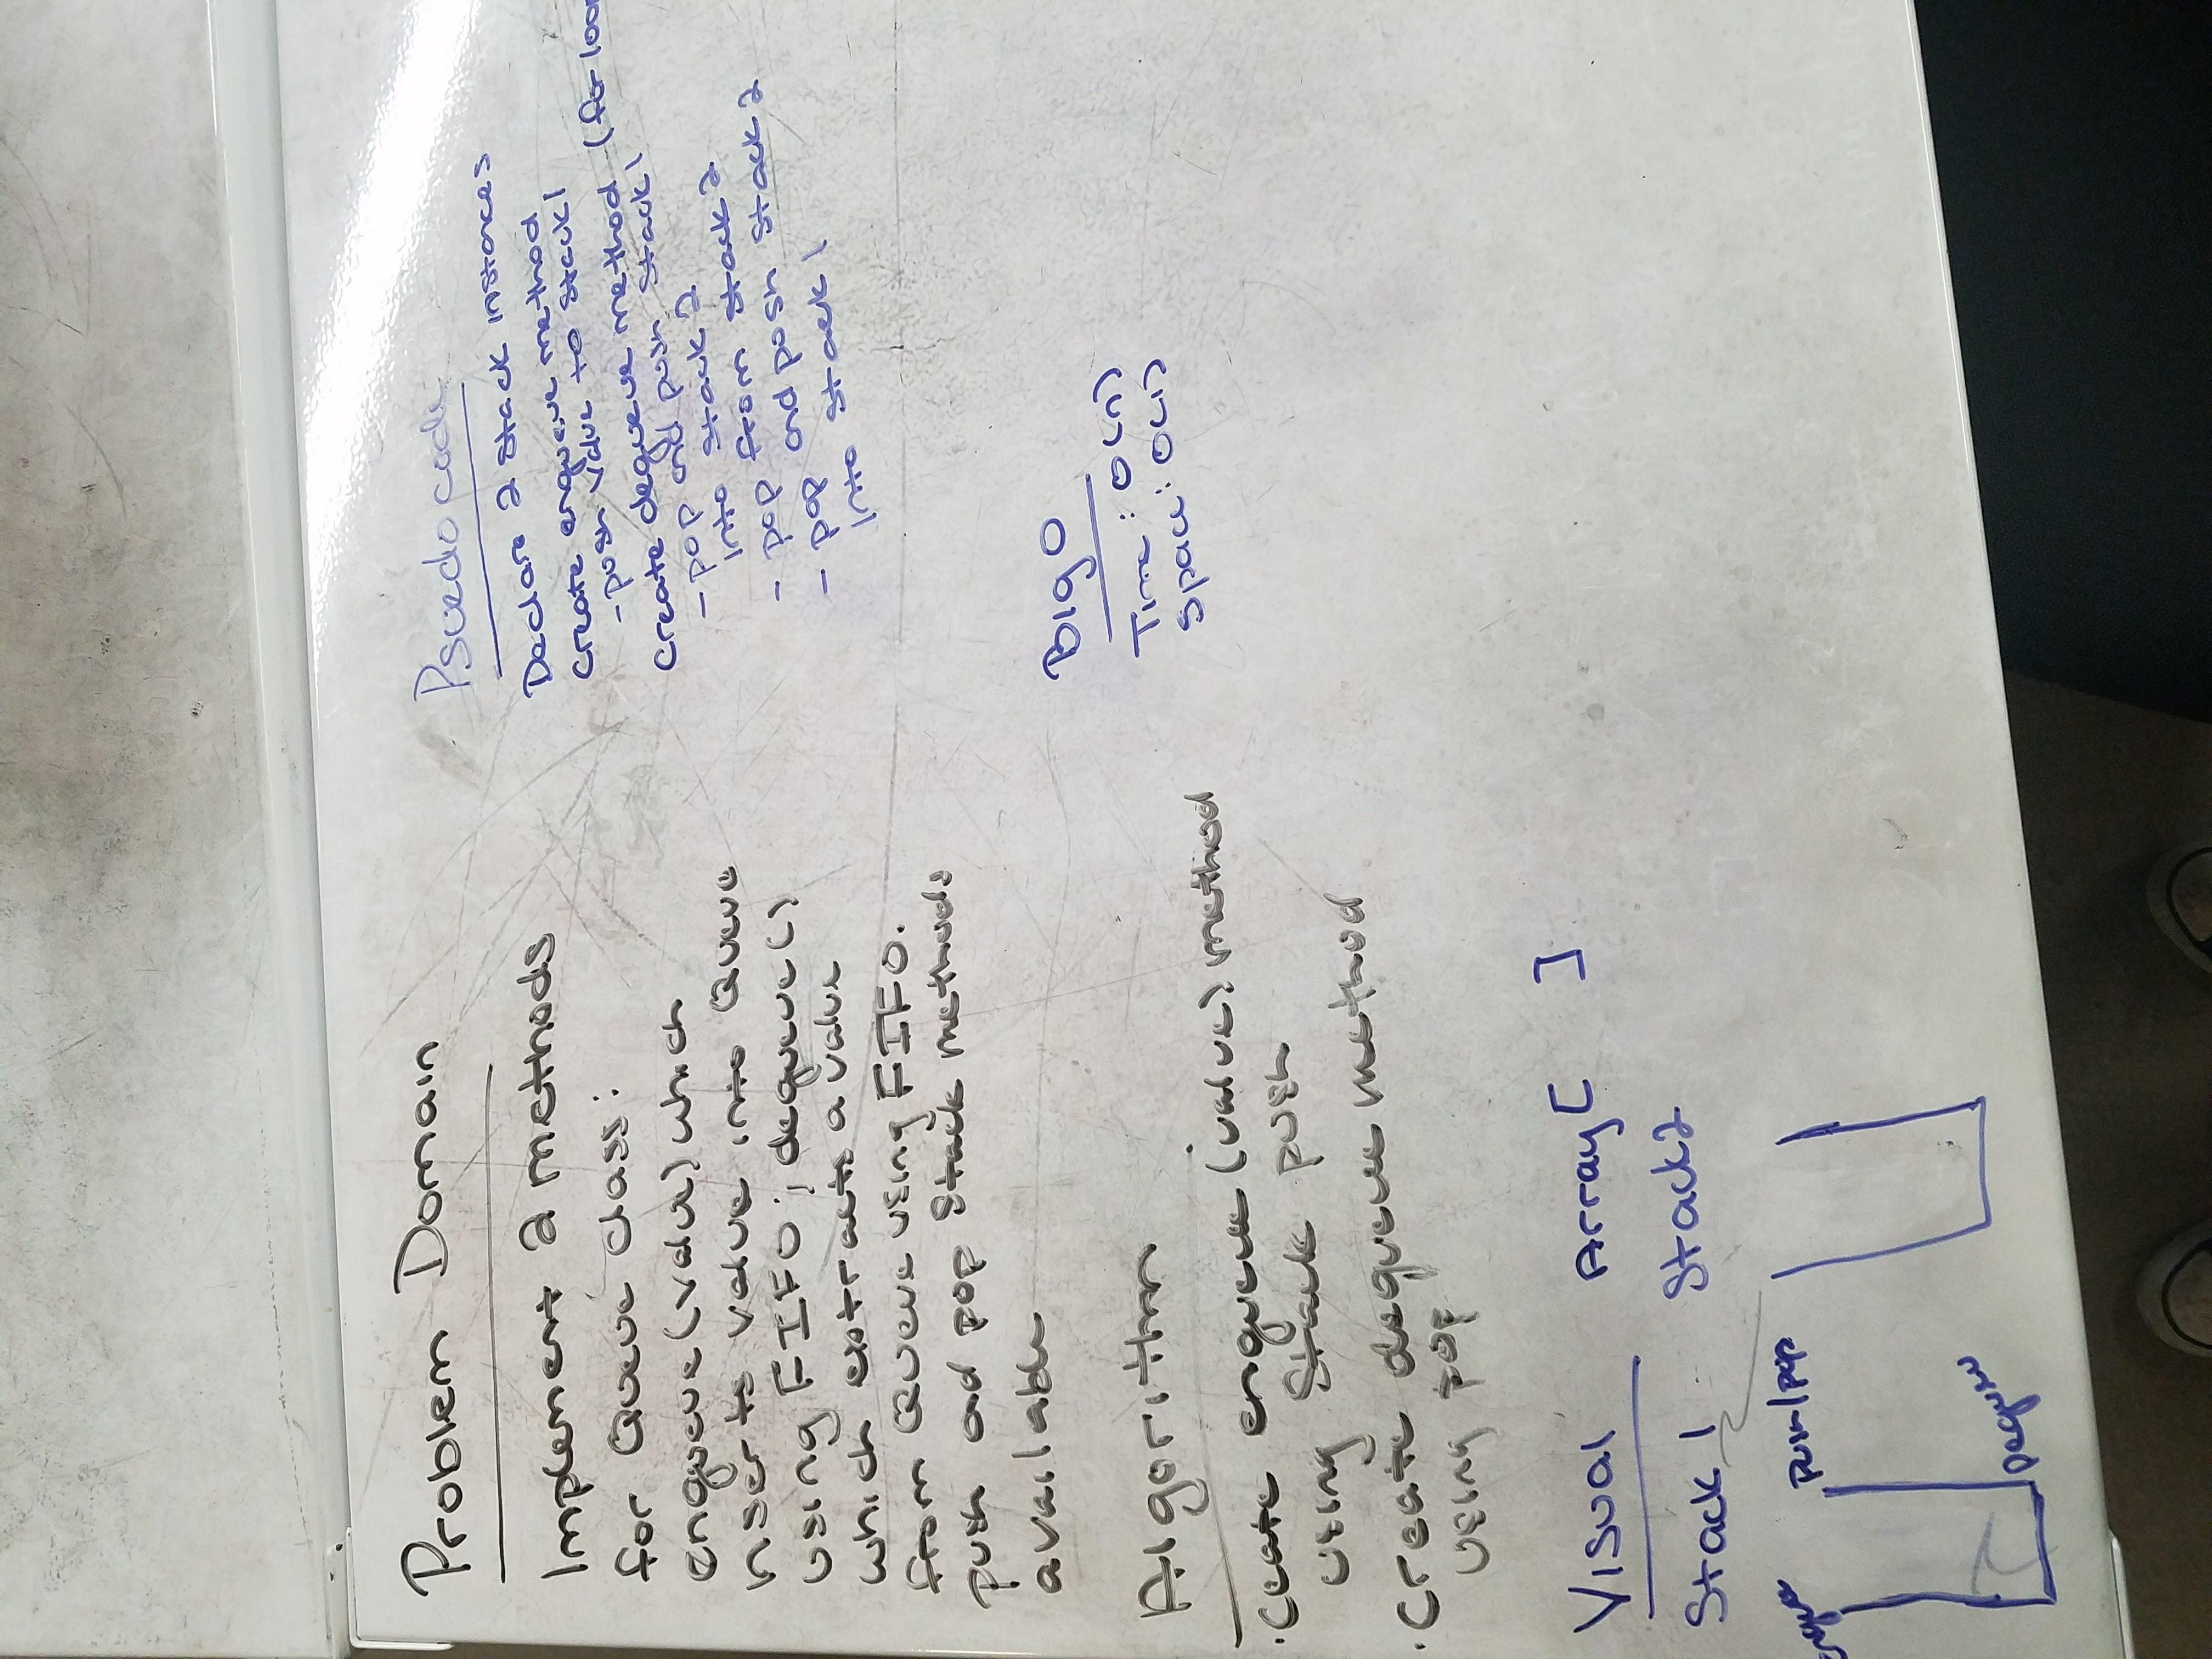 Problem Domain
Implement 2 methods
for Queue class:
enqueue(value) which
inserts value into Queue
using FIFO; dequeue()
which extracts a value
from Queue using FIFO.
push and pop Stack methods
available
Algorithm
· Ceate enqueue (value) method
using Stack push
· Create dequeue method
using pop
Visual Array [ ]
Stack 1 Stack2
push/pop
Dequeue
Psuedo code
Declare 2 stack instances
create enqueue method
- push value to stack1
create dequeue method (for loop
- pop and push stack1
into stack 2
- pop from stack 2
- pop and push stack 2
into stack 1
Big O
Time: O(n)
Space: O(1)